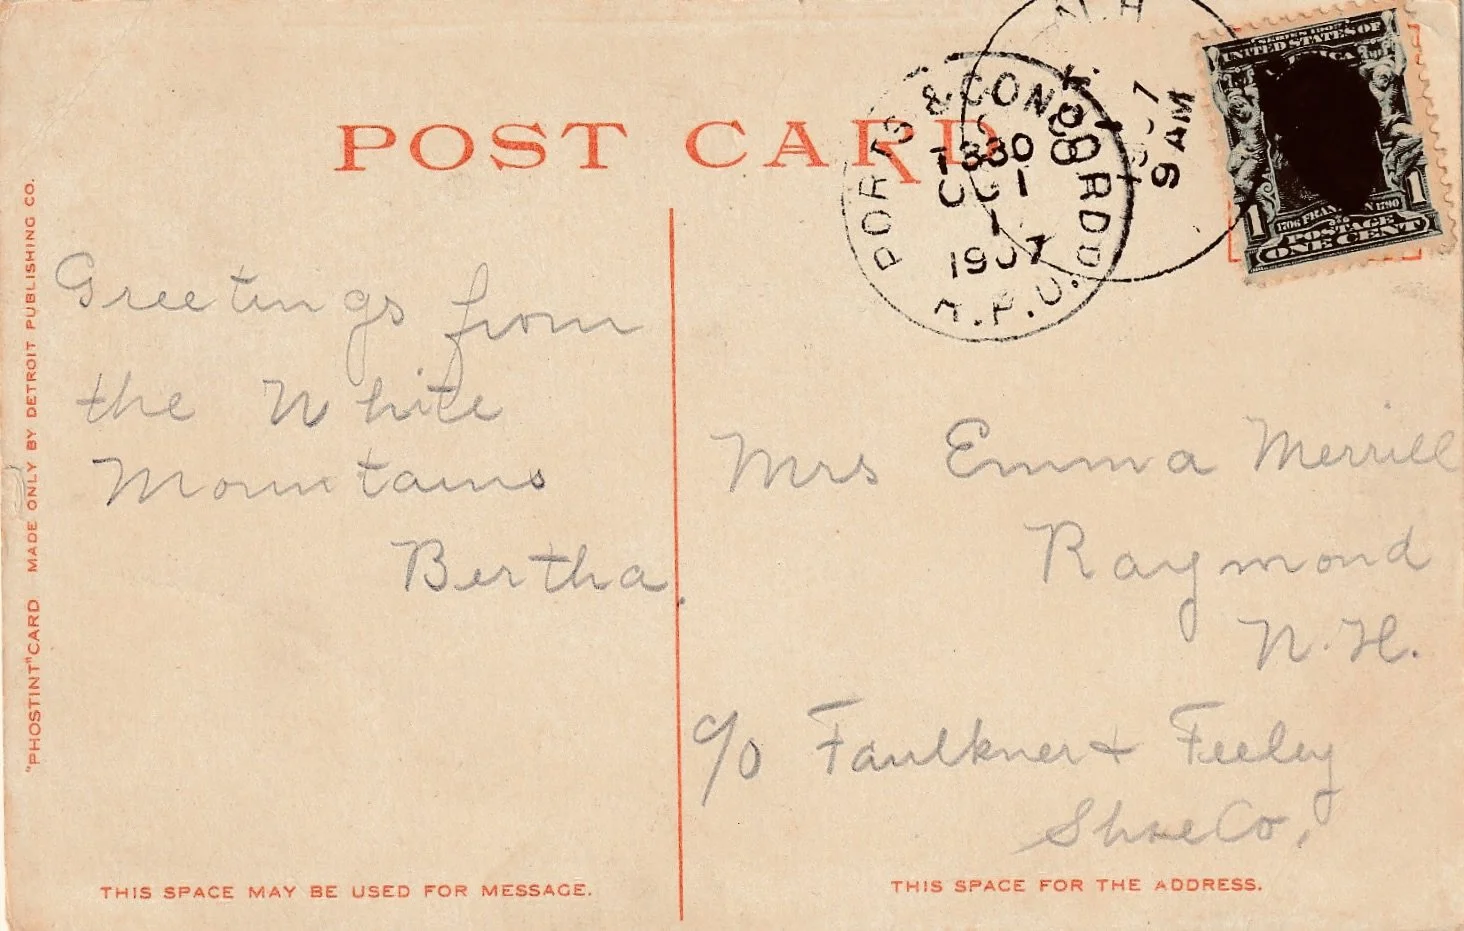 POST CARD
"PHOSTINT" CARD MADE ONLY BY DETROIT PUBLISHING CO.
Greetings from
the White
Mountains
Bertha.
THIS SPACE MAY BE USED FOR MESSAGE.
PORTS & CONCORD
T330
OCT
1
1907
R.P.O.
N.H.
9 AM
SERIES 1902
UNITED STATES OF
1706 FRAN N 1790
1 POSTAGE 1
ONE CENT
Mrs Emma Merrill
Raymond
N.H.
c/o Faulkner & Feeley
Shoe Co.
THIS SPACE FOR THE ADDRESS.